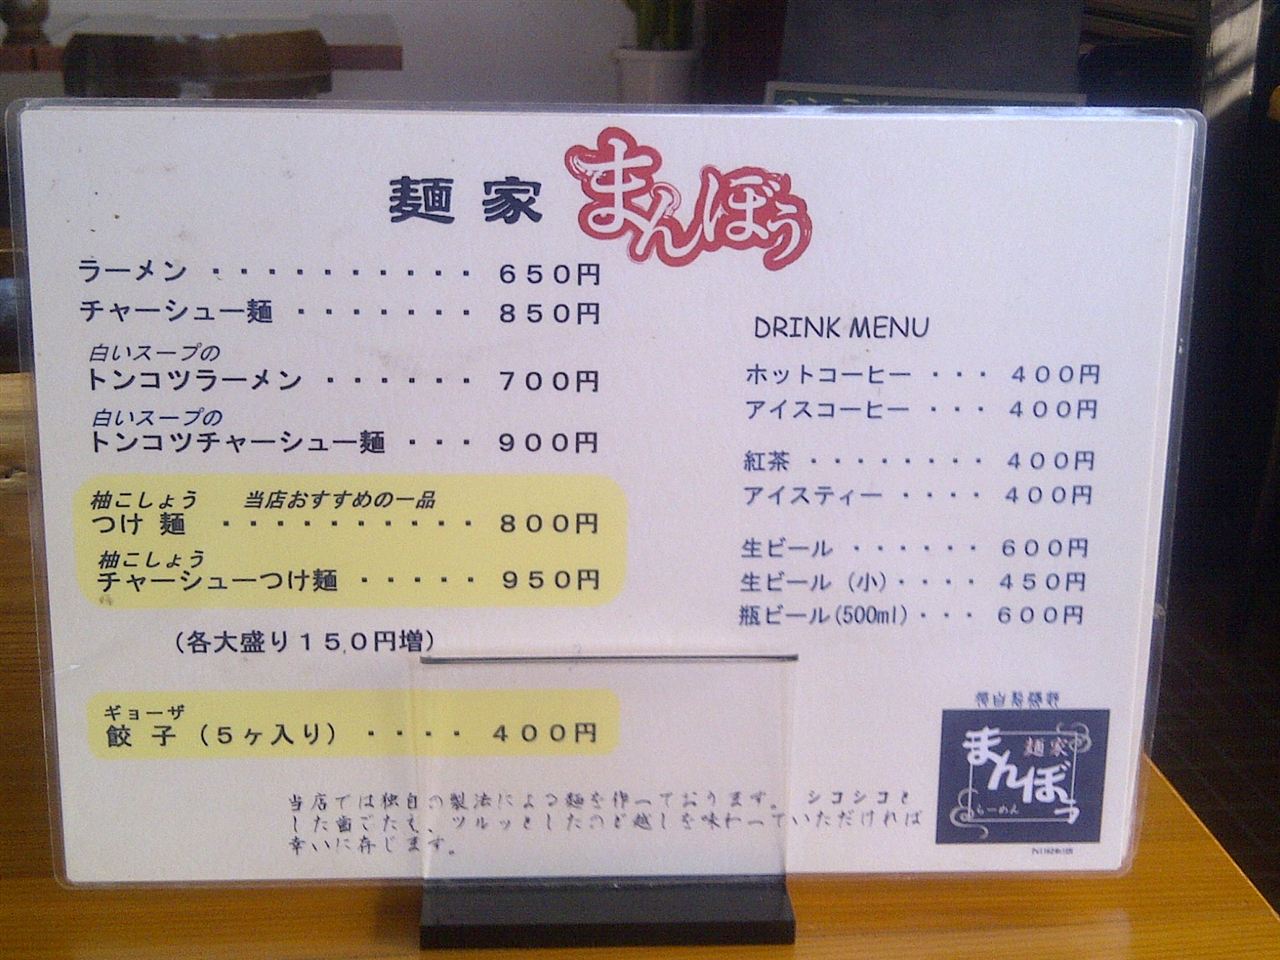 麺家 まんぼう
ラーメン ・・・・・・・・・・ 650円
チャーシュー麺 ・・・・・・・ 850円
白いスープの
トンコツラーメン ・・・・・・ 700円
白いスープの
トンコツチャーシュー麺 ・・・ 900円
柚こしょう 当店おすすめの一品
つけ麺 ・・・・・・・・・・ 800円
柚こしょう
チャーシューつけ麺 ・・・・・ 950円
(各大盛り150円増)
ギョーザ
餃子(5ヶ入り)・・・・ 400円
DRINK MENU
ホットコーヒー ・・・ 400円
アイスコーヒー ・・・ 400円
紅茶 ・・・・・・・・ 400円
アイスティー ・・・・ 400円
生ビール ・・・・・・ 600円
生ビール (小)・・・・ 450円
瓶ビール(500ml)・・・ 600円
当店では独自の製法による麺を作っております。 シコシコと
した歯ごたえ、ツルッとしたのど越しを味わっていただければ
幸いに存じます。
麺家
まんぼう
らーめん